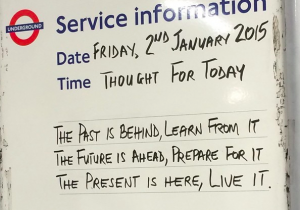 UNDERGROUND
Service information
Date FRIDAY, 2ND JANUARY 2015
Time THOUGHT FOR TODAY
THE PAST IS BEHIND, LEARN FROM IT
THE FUTURE IS AHEAD, PREPARE FOR IT
THE PRESENT IS HERE, LIVE IT.